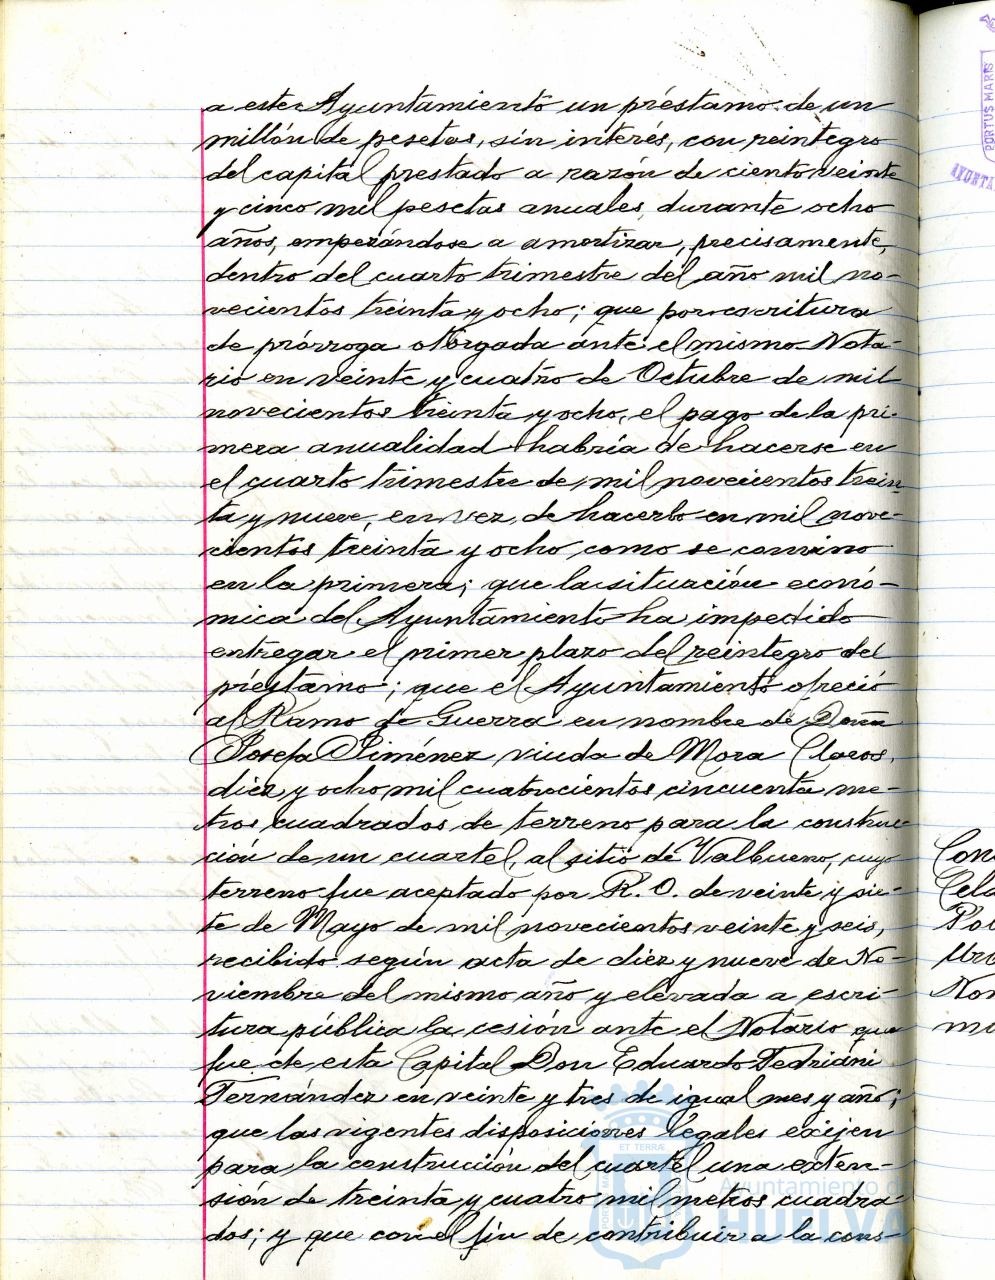 a este Ayuntamiento un préstamo de un
millón de pesetas, sin interés, con reintegro
del capital prestado a razón de ciento veinte
y cinco mil pesetas anuales, durante ocho
años, empezándose a amortizar, precisamente,
dentro del cuarto trimestre del año mil no-
vecientos treinta y ocho; que por escritura
de prórroga otorgada ante el mismo Nota-
rio en veinte y cuatro de Octubre de mil
novecientos treinta y ocho, el pago de la pri-
mera anualidad habría de hacerse en
el cuarto trimestre de mil novecientos trein-
ta y nueve, en vez de hacerlo en mil nove-
cientos treinta y ocho, como se convino
en la primera; que la situación econó-
mica del Ayuntamiento ha impedido
entregar el primer plazo del reintegro del
préstamo; que el Ayuntamiento ofreció
al Ramo de Guerra en nombre de Doña
Josefa Jiménez viuda de Mora Claros,
diez y ocho mil cuatrocientos cincuenta me-
tros cuadrados de terreno para la construc-
ción de un cuartel, al sitio de Valbueno, cuyo
terreno fue aceptado por R. O. de veinte y sie-
te de Mayo de mil novecientos veinte y seis,
recibido según acta de diez y nueve de No-
viembre del mismo año y elevada a escri-
tura pública la cesión ante el Notario que
fue de esta Capital Don Eduardo Fedriáni
Fernández en veinte y tres de igual mes y año;
que las vigentes disposiciones legales exijen
para la construcción del cuartel una exten-
sión de treinta y cuatro mil metros cuadra-
dos; y que con el fin de contribuir a la cons-
PORTUS MARIS
ET TERRÆ
Ayuntamiento de
HUELVA